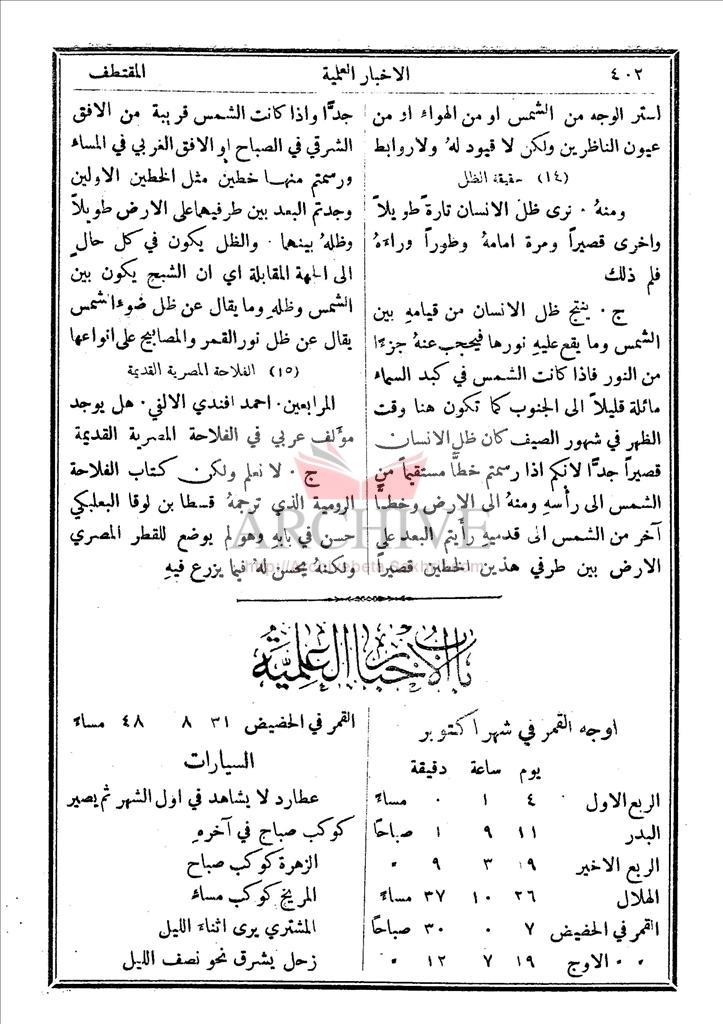 ٤٠٢ الاخبار العلمية المقتطف
استر الوجه من الشمس او من الهواء او من
عيون الناظرين ولكن لا قيود لهُ ولا روابط
(١٤) حقيقة الظل
ومنهُ ٠ نرى ظل الانسان تارةً طويلاً
واخرى قصيراً ومرة امامهُ وطوراً وراءهُ
فلم ذلك
ج ٠ ينتج ظل الانسان من قيامهِ بين
الشمس وما يقع عليهِ نورها فيحجب عنهُ جزءًا
من النور فاذا كانت الشمس في كبد السماء
مائلة قليلاً الى الجنوب كما تكون هنا وقت
الظهر في شهور الصيف كان ظل الانسان
قصيراً جدًّا لانكم اذا رسمتم خطًّا مستقيماً من
الشمس الى رأسهِ ومنهُ الى الارض وخطًّا
آخر من الشمس الى قدميهِ رأيتم البعد على
الارض بين طرفي هذين الخطين قصيراً
جدًّا واذا كانت الشمس قريبة من الافق
الشرقي في الصباح او الافق الغربي في المساء
ورسمتم منها خطين مثل الخطين الاولين
وجدتم البعد بين طرفيهما على الارض طويلاً
وظلهُ بينهما ٠ والظل يكون في كل حالٍ
الى الجهة المقابلة اي ان الشبح يكون بين
الشمس وظلهِ وما يقال عن ظل ضوء الشمس
يقال عن ظل نور القمر والمصابيح على انواعها
(١٥) الفلاحة المصرية القديمة
المرابعين ٠ احمد افندي الالفي ٠ هل يوجد
مؤلف عربي في الفلاحة المصرية القديمة
ج ٠ لا نعلم ولكن كتاب الفلاحة
الرومية الذي ترجمهُ قسطا بن لوقا البعلبكي
حسن في بابهِ وهو لم يوضع للقطر المصري
ولكنهُ يحسن لهُ فيما يزرع فيهِ
ARCHIVE
باب الاخبار العلمية
اوجه القمر في شهر اكتوبر
يوم ساعة دقيقة
الربع الاول ٤ ١ ٠ مساءً
البدر ١١ ٩ ١ صباحًا
الربع الاخير ١٩ ٣ ٩ "
الهلال ٢٦ ١٠ ٣٧ مساءً
القمر في الحضيض ٧ ٠ ٣٠ صباحًا
" " الاوج ١٩ ٧ ١٢ "
القمر في الحضيض ٣١ ٨ ٤٨ مساءً
السيارات
عطارد لا يشاهد في اول الشهر ثم يصير
كوكب صباح في آخرهِ
الزهرة كوكب صباح
المريخ كوكب مساء
المشتري يرى اثناء الليل
زحل يشرق نحو نصف الليل